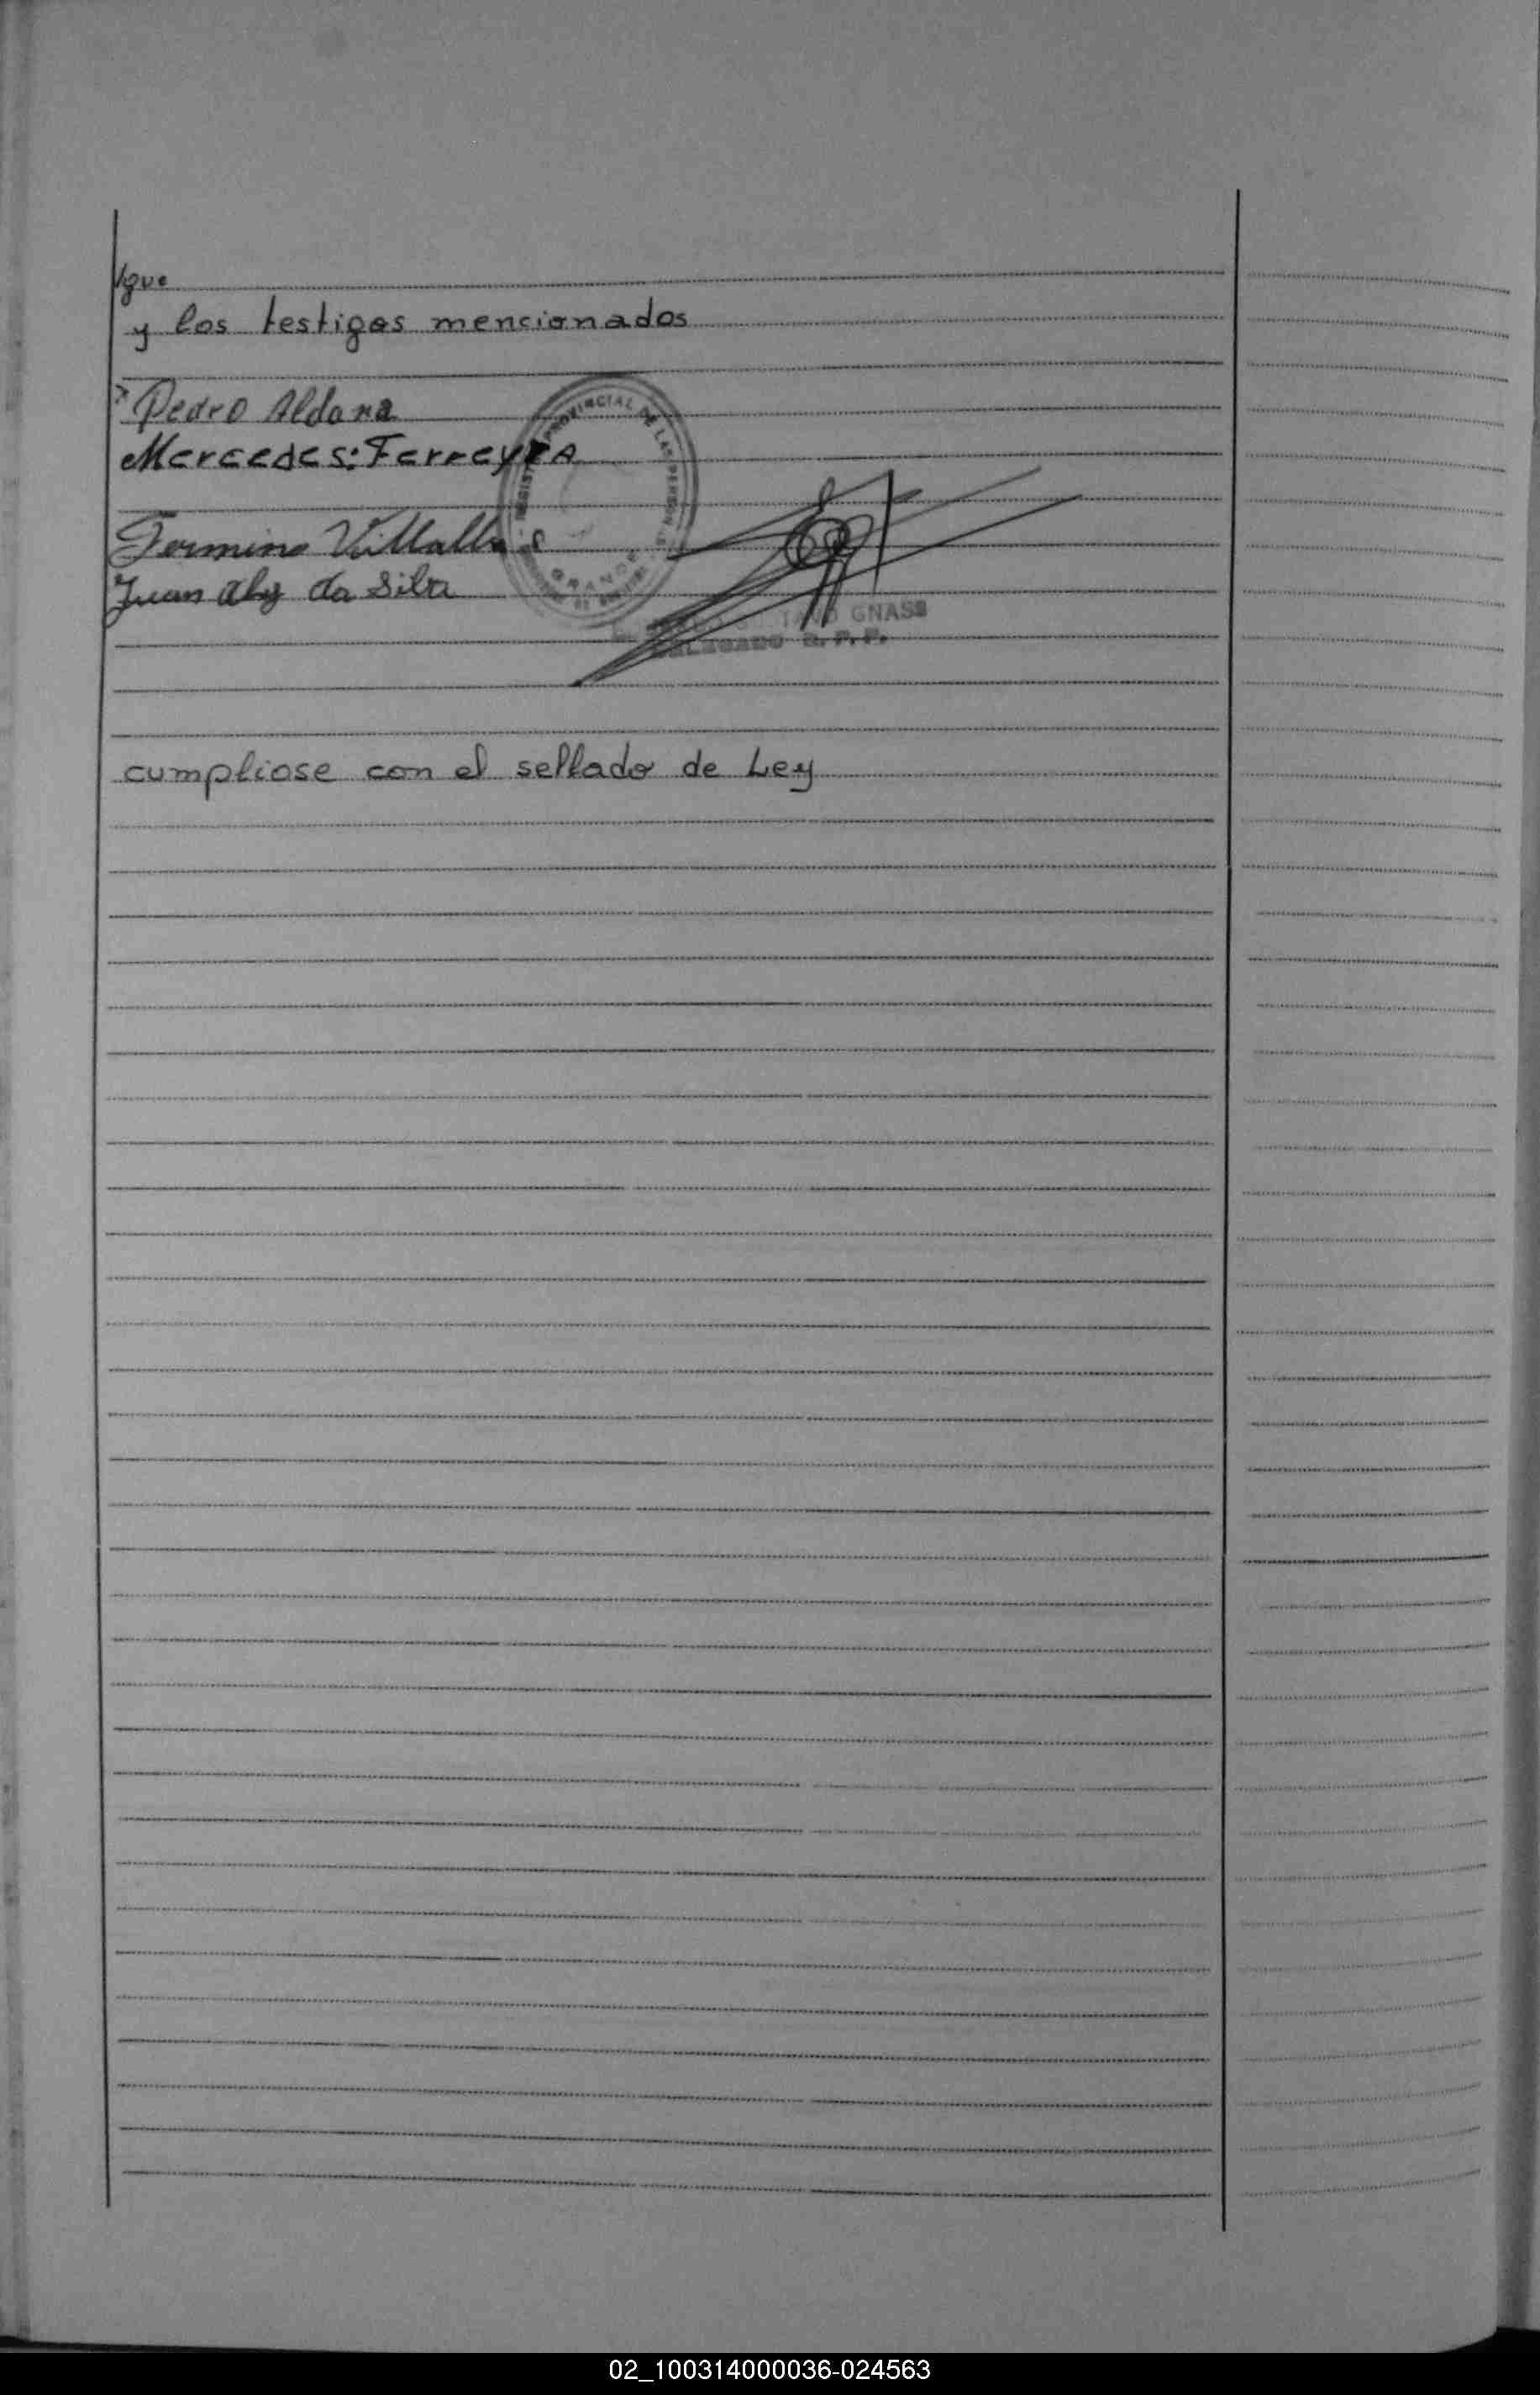 y los testigos mencionados
Pedro Aldana
Mercedes: FerreyRA
Juan da Silva
PROVINCIAL DE LAS PERSONAS
GRANDE
GNASS
DELEGADO R. P. P.
cumpliose con el sellado de Ley
02_100314000036-024563